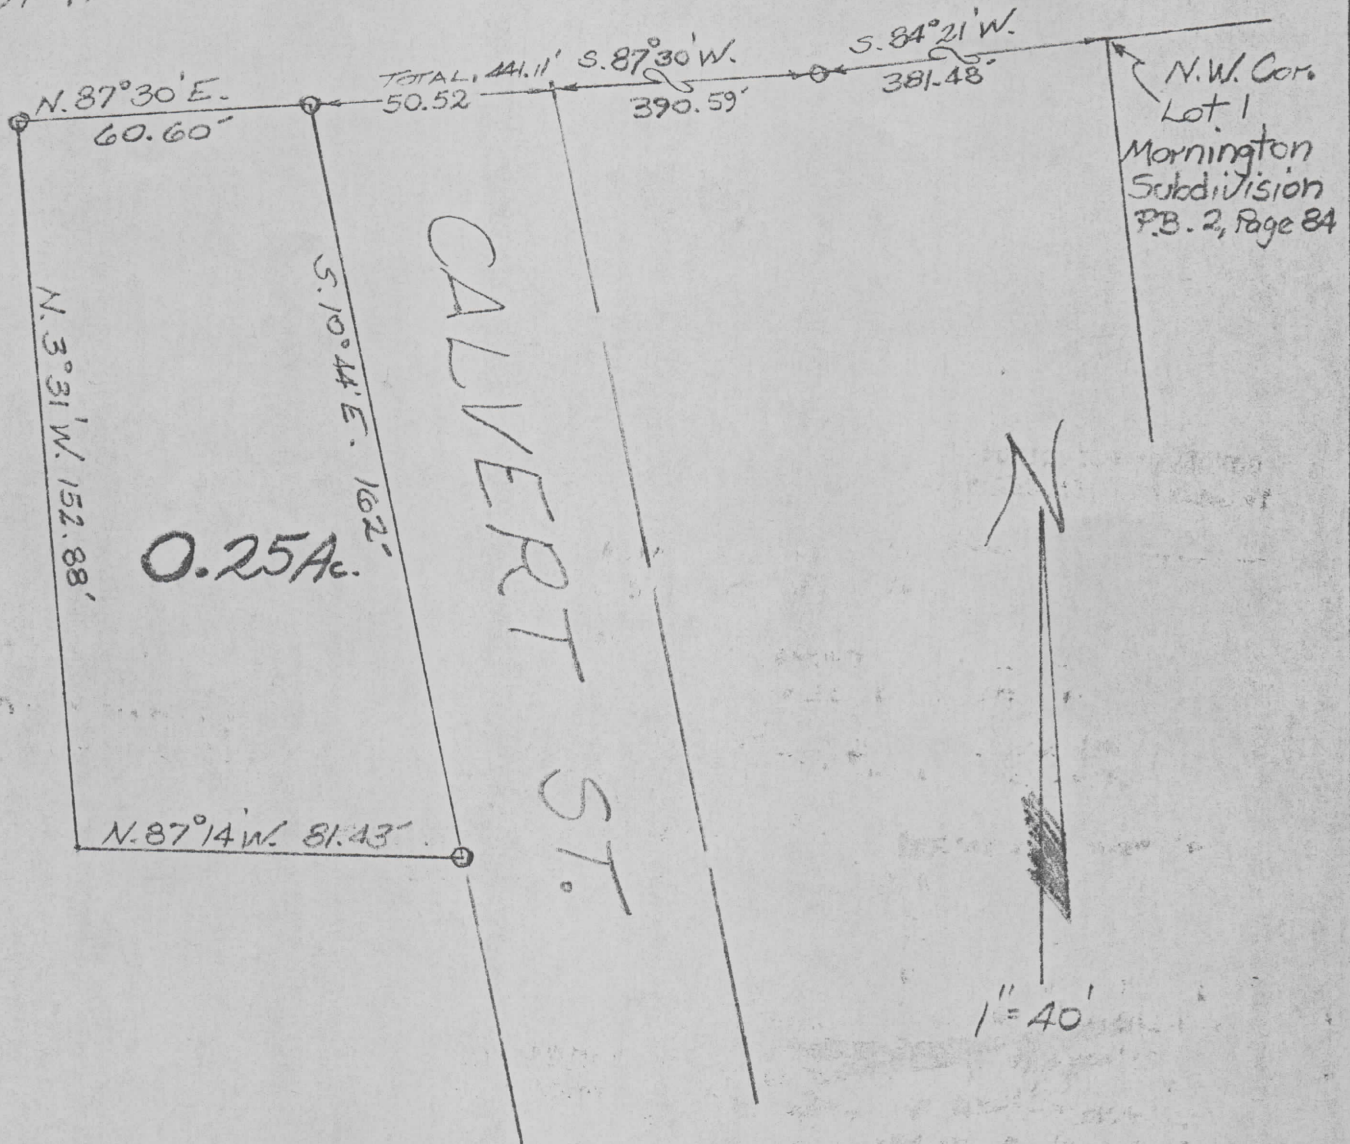 N. 87°30'E.
60.60'
TOTAL. 441.11'
50.52
S. 87°30'W.
390.59'
S. 84°21'W.
381.48'
N.W. Cor.
Lot 1
Mornington
Subdivision
P.B. 2, Page 84
N. 3°31'W. 152.88'
S. 10°44'E. 162'
CALVERT ST.
0.25Ac.
N. 87°14'W. 81.43'
N
1"=40'